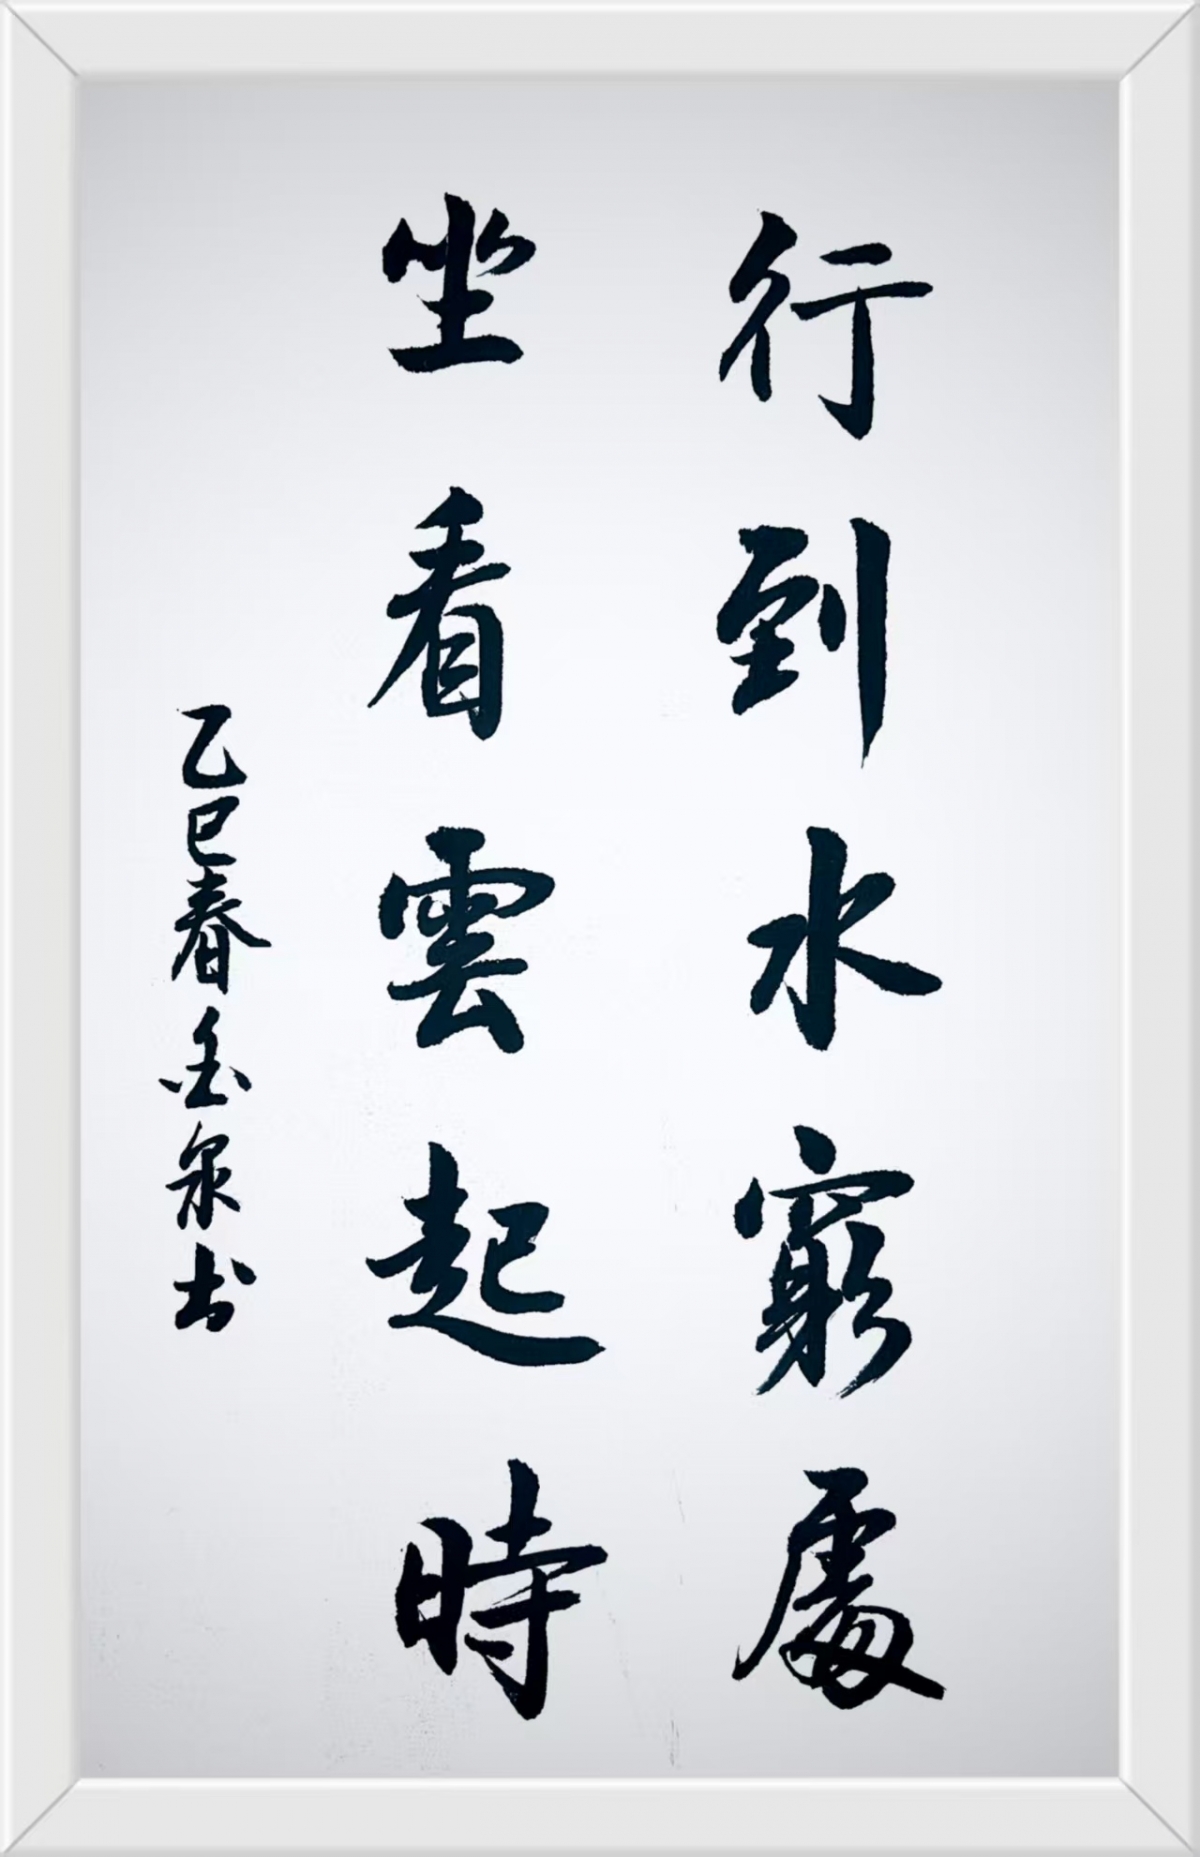 行到水窮處
坐看雲起時
乙巳春金泉书